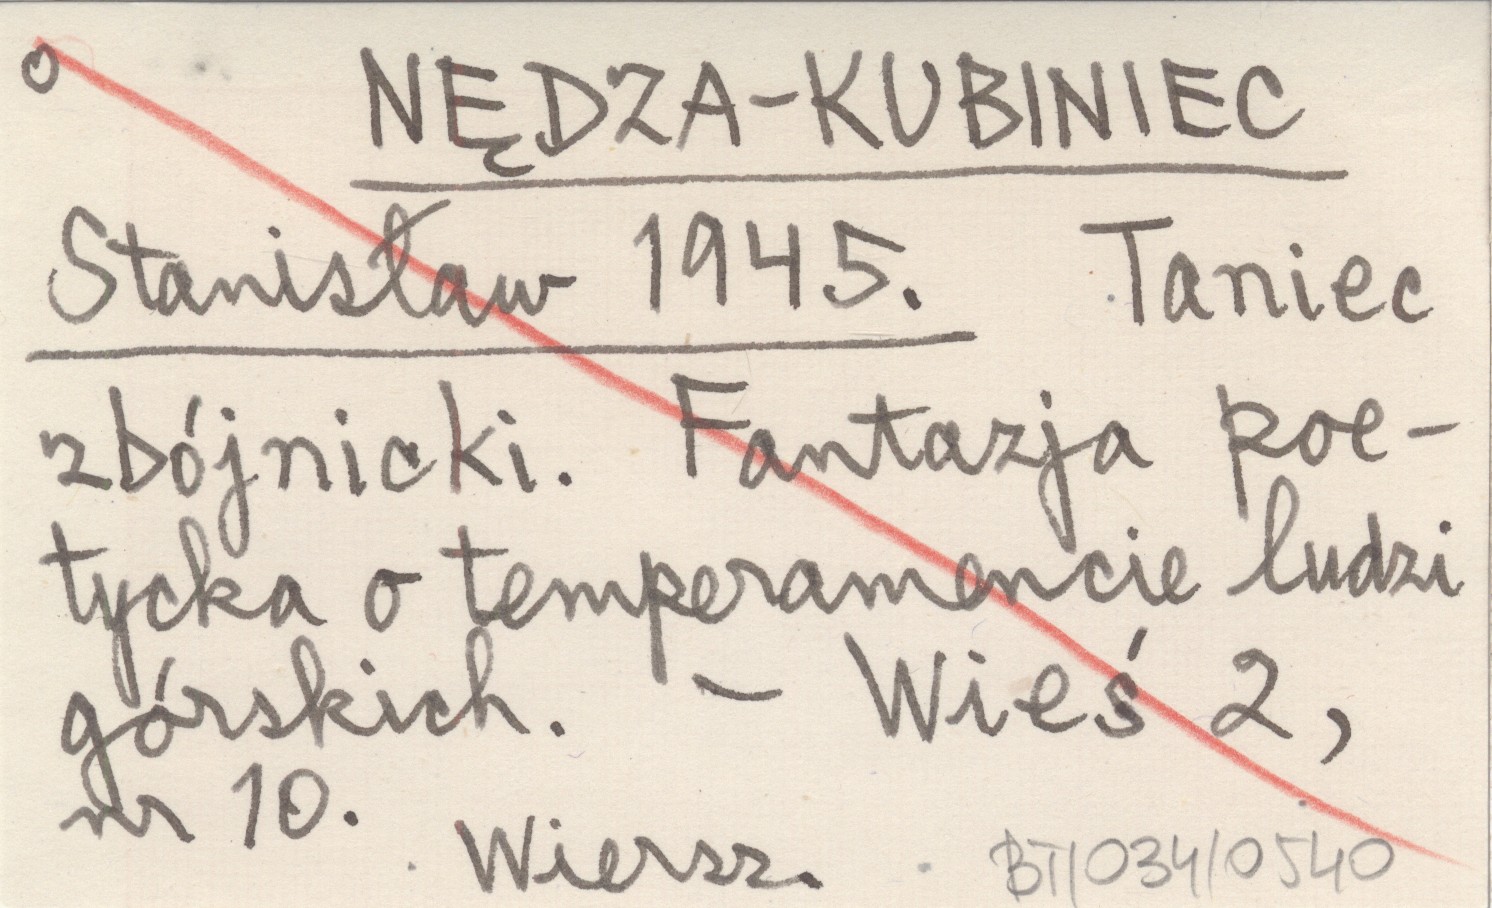 o NĘDZA-KUBINIEC
Stanisław 1945. Taniec
zbójnicki. Fantazja poe-
tycka o temperamencie ludzi
górskich. - Wieś 2,
nr 10.
Wiersz.
BT/034/0540